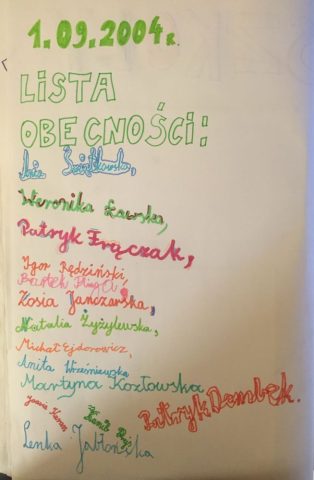 1.09.2004 r.
LISTA
OBECNOŚCI:
Ania
Weronika Ławska,
Patryk Frączak,
Igor Rędziński,
Bartek
Zosia Janczarska,
Natalia Żyżylewska,
Michał Ejdorowicz,
Anita Wiśniewska
Martyna Kozłowska
Patryk Dembek.
Kamil
Lenka Jabłońska